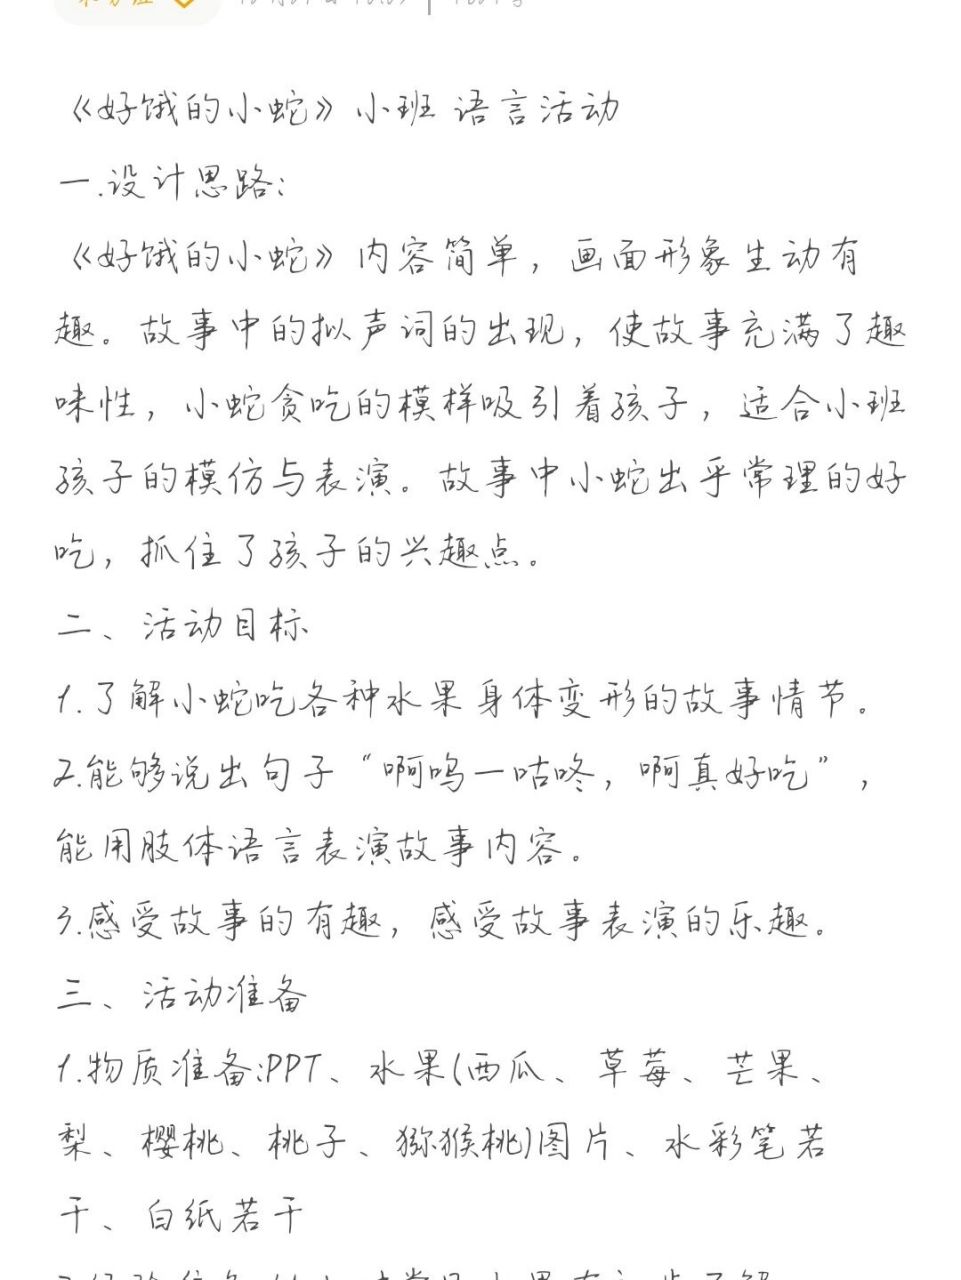 《好饿的小蛇》小班 语言活动
一.设计思路:
《好饿的小蛇》内容简单，画面形象生动有
趣。故事中的拟声词的出现，使故事充满了趣
味性，小蛇贪吃的模样吸引着孩子，适合小班
孩子的模仿与表演。故事中小蛇出乎常理的好
吃，抓住了孩子的兴趣点。
二、活动目标
1.了解小蛇吃各种水果身体变形的故事情节。
2.能够说出句子“啊呜一咕咚，啊真好吃”，
能用肢体语言表演故事内容。
3.感受故事的有趣，感受故事表演的乐趣。
三、活动准备
1.物质准备:PPT、水果(西瓜、草莓、芒果、
梨、樱桃、桃子、猕猴桃)图片、水彩笔若
干、白纸若干